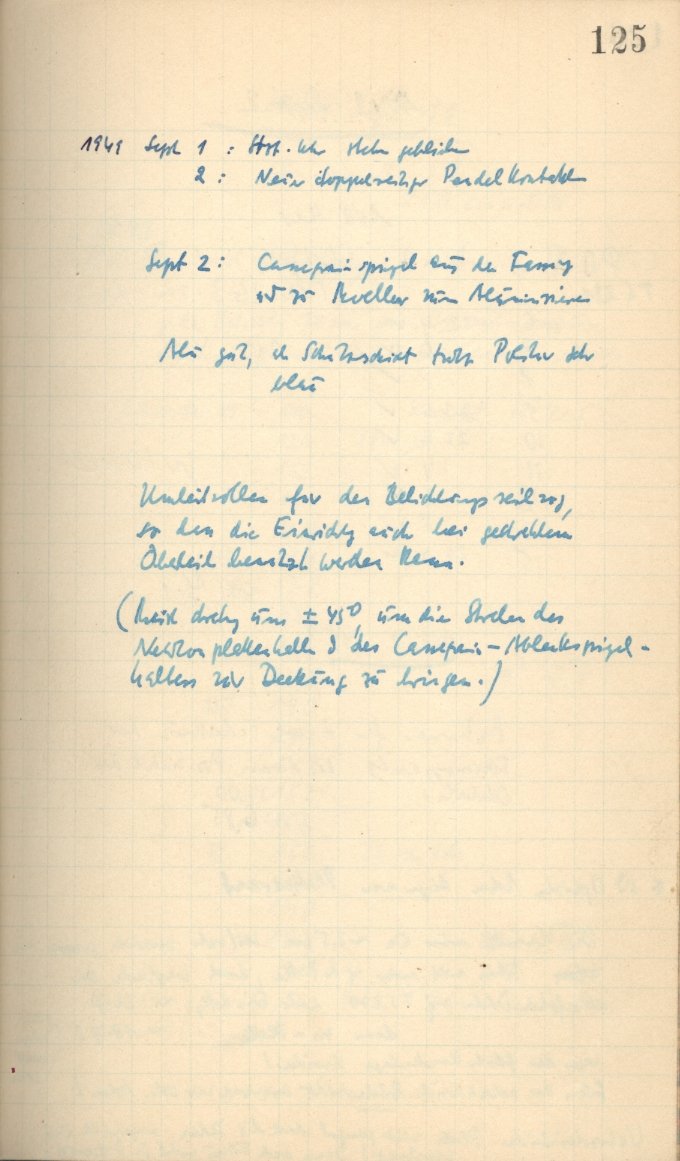 125
1949 Sept 1 : Hpt. Uhr stehn geblieben
2 : Neuer doppelseitiger Pendelkontakt
Sept 2 : Cassegrainspiegel aus der Fassung
zu Moeller zum Aluminisieren
Alu gut, Schutzschicht trotz sehr
blau
Umleitrollen für den Belichtungsseilzug,
so dass die Einrichtg auch bei gedrehtem
Oberteil benützt werden kann.
( drehg um ± 45°, um die Streben des
Newtonplattenhalt d des Cassegrain-Ablenkspiegel-
halters zur Deckung zu bringen.)